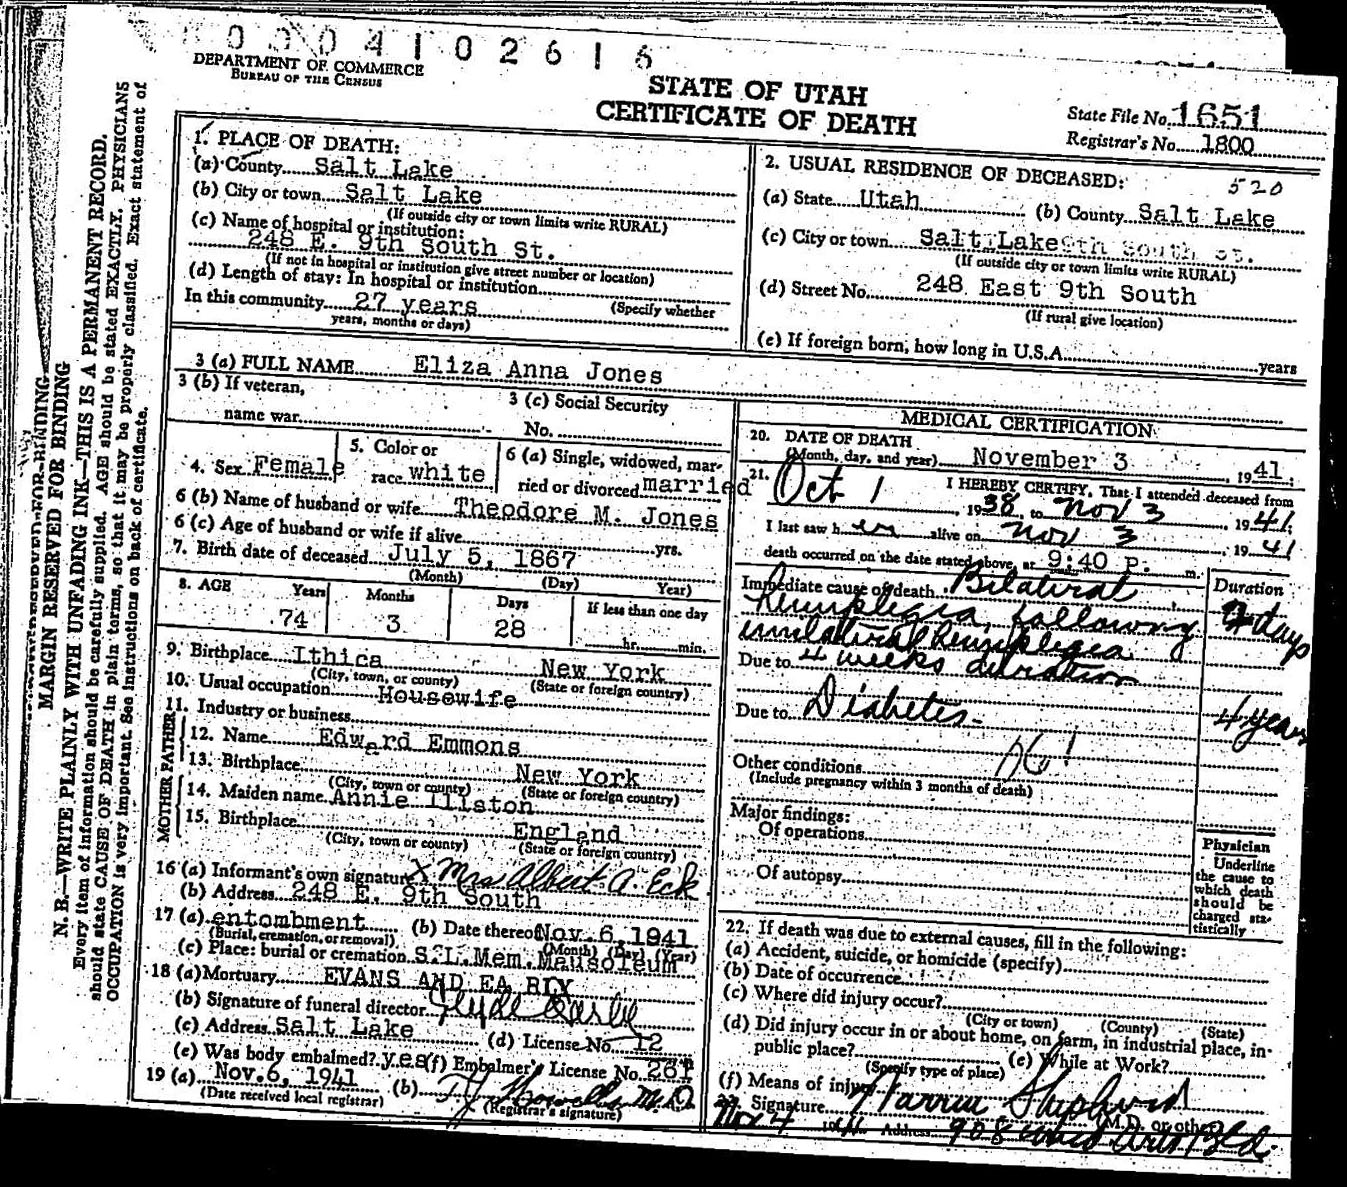 0004102616
DEPARTMENT OF COMMERCE
BUREAU OF THE CENSUS
STATE OF UTAH
CERTIFICATE OF DEATH
State File No. 1651
Registrar's No. 1800
MARGIN RESERVED FOR BINDING
N. B.—WRITE PLAINLY WITH UNFADING INK—THIS IS A PERMANENT RECORD.
Every item of information should be carefully supplied. AGE should be stated EXACTLY. PHYSICIANS
should state CAUSE OF DEATH in plain terms, so that it may be properly classified. Exact statement of
OCCUPATION is very important. See instructions on back of certificate.
1. PLACE OF DEATH:
(a) County Salt Lake
(b) City or town Salt Lake
(If outside city or town limits write RURAL)
(c) Name of hospital or institution:
248 E. 9th South St.
(If not in hospital or institution give street number or location)
(d) Length of stay: In hospital or institution
In this community 27 years (Specify whether
years, months or days)
2. USUAL RESIDENCE OF DECEASED: 520
(a) State Utah (b) County Salt Lake
(c) City or town Salt Lake 9th South St.
(If outside city or town limits write RURAL)
(d) Street No. 248 East 9th South
(If rural give location)
(e) If foreign born, how long in U.S.A. years
3 (a) FULL NAME Eliza Anna Jones
3 (b) If veteran,
name war
3 (c) Social Security
No.
4. Sex Female
5. Color or
race white
6 (a) Single, widowed, mar-
ried or divorced married
6 (b) Name of husband or wife Theodore M. Jones
6 (c) Age of husband or wife if alive yrs.
7. Birth date of deceased July 5, 1867
(Month) (Day) Year)
8. AGE Years Months Days If less than one day
74 3 28 hr. min.
9. Birthplace Ithica New York
(City, town, or county) (State or foreign country)
10. Usual occupation Housewife
11. Industry or business
FATHER
12. Name Edward Emmons
13. Birthplace New York
(City, town or county) (State or foreign country)
MOTHER
14. Maiden name Annie Iliston
15. Birthplace England
(City, town or county) (State or foreign country)
16 (a) Informant's own signature X Mrs Albert A. Eck
(b) Address 248 E. 9th South
17 (a) entombment (b) Date thereof Nov. 6, 1941
(Burial, cremation, or removal) (Month) (Day) (Year)
(c) Place: burial or cremation S.L. Mem. Mausoleum
18 (a) Mortuary EVANS AND EARLY
(b) Signature of funeral director Clyde
(c) Address Salt Lake (d) License No. 12
(e) Was body embalmed? yes (f) Embalmer's License No. 261
19 (a) Nov. 6, 1941 (b) M.D.
(Date received local registrar) (Registrar's signature)
MEDICAL CERTIFICATION
20. DATE OF DEATH
(Month, day, and year) November 3 1941
21. I HEREBY CERTIFY, That I attended deceased from
Oct 1 1938, to Nov 3 1941
I last saw her alive on Nov 3 1941
death occurred on the date stated above, at 9:40 p. m.
Immediate cause of death Bilateral Duration
hemiplegia, following days
unilateral hemiplegia
Due to 4 weeks duration
Due to Diabetes 4 years
Other conditions
(Include pregnancy within 3 months of death)
Major findings:
Of operations
Of autopsy
Physician
Underline
the cause to
which death
should be
charged sta-
tistically
22. If death was due to external causes, fill in the following:
(a) Accident, suicide, or homicide (specify)
(b) Date of occurrence
(c) Where did injury occur?
(City or town) (County) (State)
(d) Did injury occur in or about home, on farm, in industrial place, in
public place? (e) While at Work?
(Specify type of place)
(f) Means of injury
23. Signature Shepherd
(M.D. or other)
Nov 4 1941 Address 908 Bld.